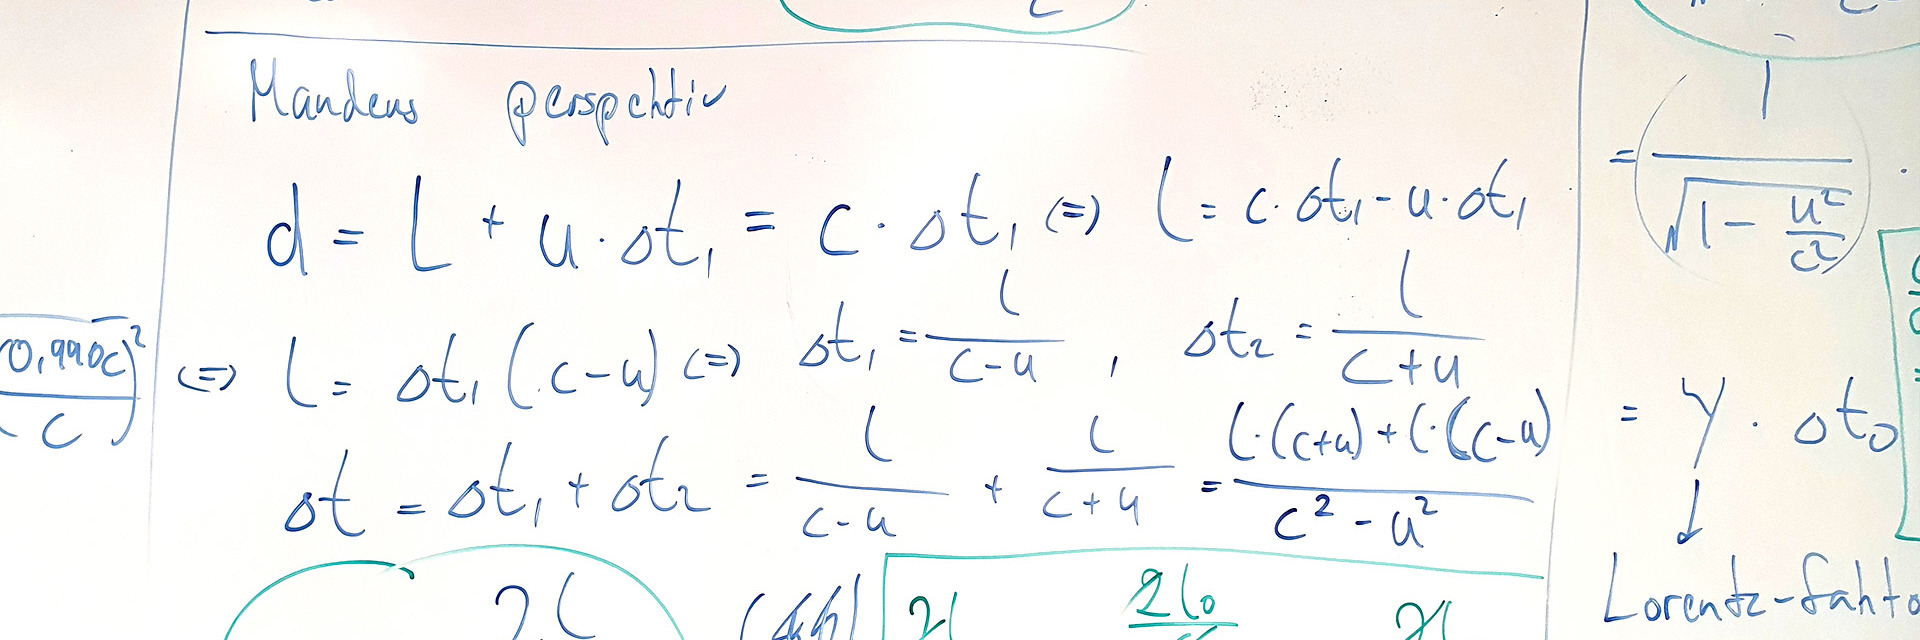 Mandens perspektiv
d = L + u · Δt₁ = c · Δt₁ (=) L = c · Δt₁ - u · Δt₁
(=) L = Δt₁ (c-u) (=) Δt₁ = L/(c-u) , Δt₂ = L/(c+u)
Δt = Δt₁ + Δt₂ = L/(c-u) + L/(c+u) = (L·(c+u) + L·(c-u))/(c² - u²)
2L
2L 2L₀ 2L
0,990c)²
c
= 1/√(1 - u²/c²) ·
= γ · Δt₀
↓
Lorentz-fakto